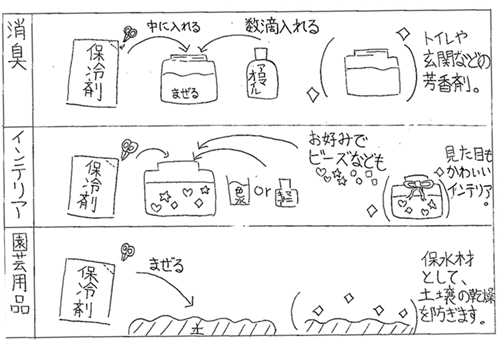 消臭
保冷剤
中に入れる
数滴入れる
まぜる
アロマ
オイル
トイレや
玄関などの
芳香剤。
インテリア
保冷剤
色水
or
お好みで
ビーズなども
見た目も
かわいい
インテリア。
園芸用品
保冷剤
まぜる
土
保水材
として、
土壌の乾燥
を防ぎます。